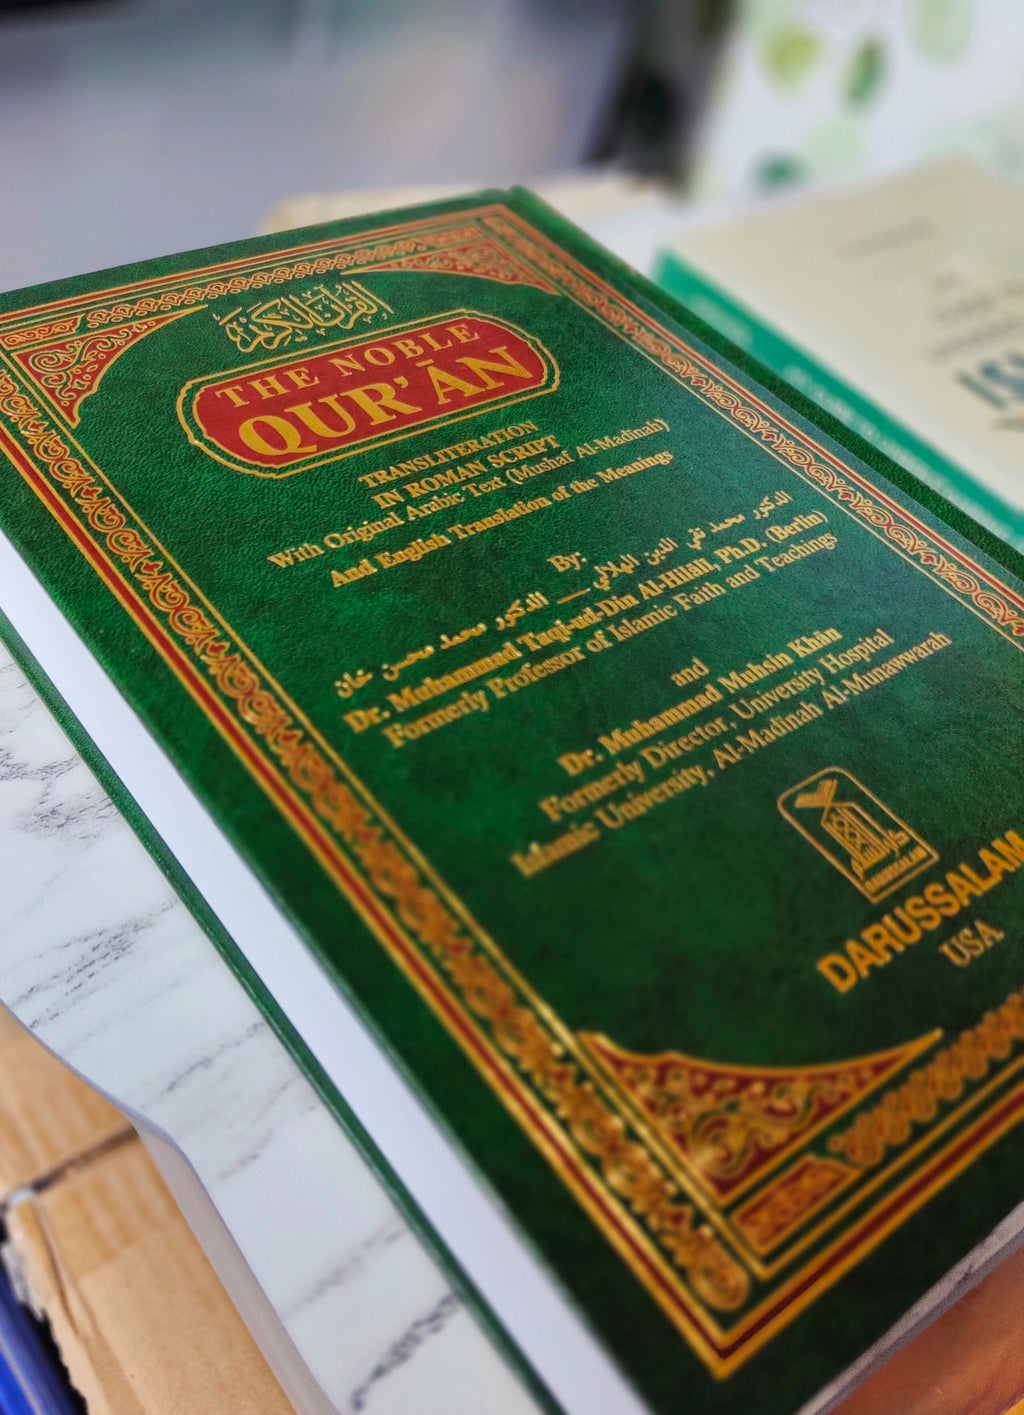 القرآن الكريم
THE NOBLE
QUR'ĀN
TRANSLITERATION
IN ROMAN SCRIPT
With Original Arabic Text (Mushaf Al-Madinah)
And English Translation of the Meanings
By:
الدكتور محمد تقي الدين الهلالي — الدكتور محمد محسن خان
Dr. Muhammad Taqi-ud-Din Al-Hilâli, Ph.D. (Berlin)
Formerly Professor of Islamic Faith and Teachings
and
Dr. Muhammad Muhsin Khân
Formerly Director, University Hospital
Islamic University, Al-Madinah Al-Munawwarah
DARUSSALAM
DARUSSALAM
USA